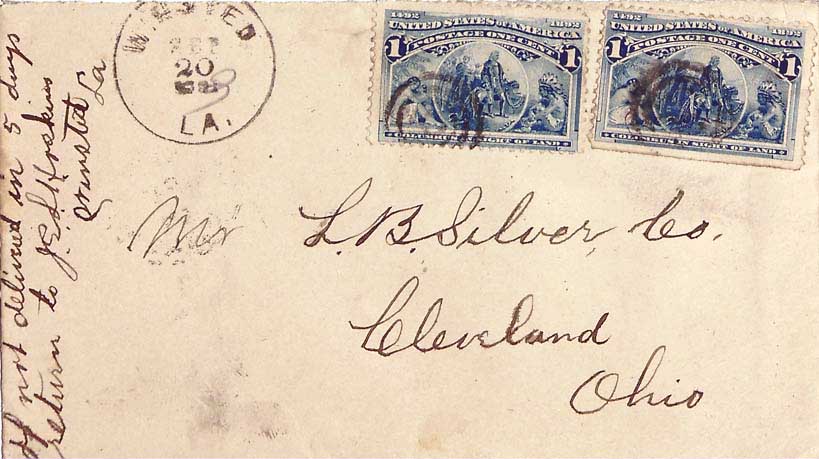 If not delivered in 5 days
return to J. S. Hoskins
Winsted La
WINSTED
20
LA.
1492 1892
UNITED STATES OF AMERICA
POSTAGE ONE CENT
1 1
COLUMBUS IN SIGHT OF LAND
1492 1892
UNITED STATES OF AMERICA
POSTAGE ONE CENT
1 1
COLUMBUS IN SIGHT OF LAND
Mr L. B. Silver, Co.
Cleveland
Ohio